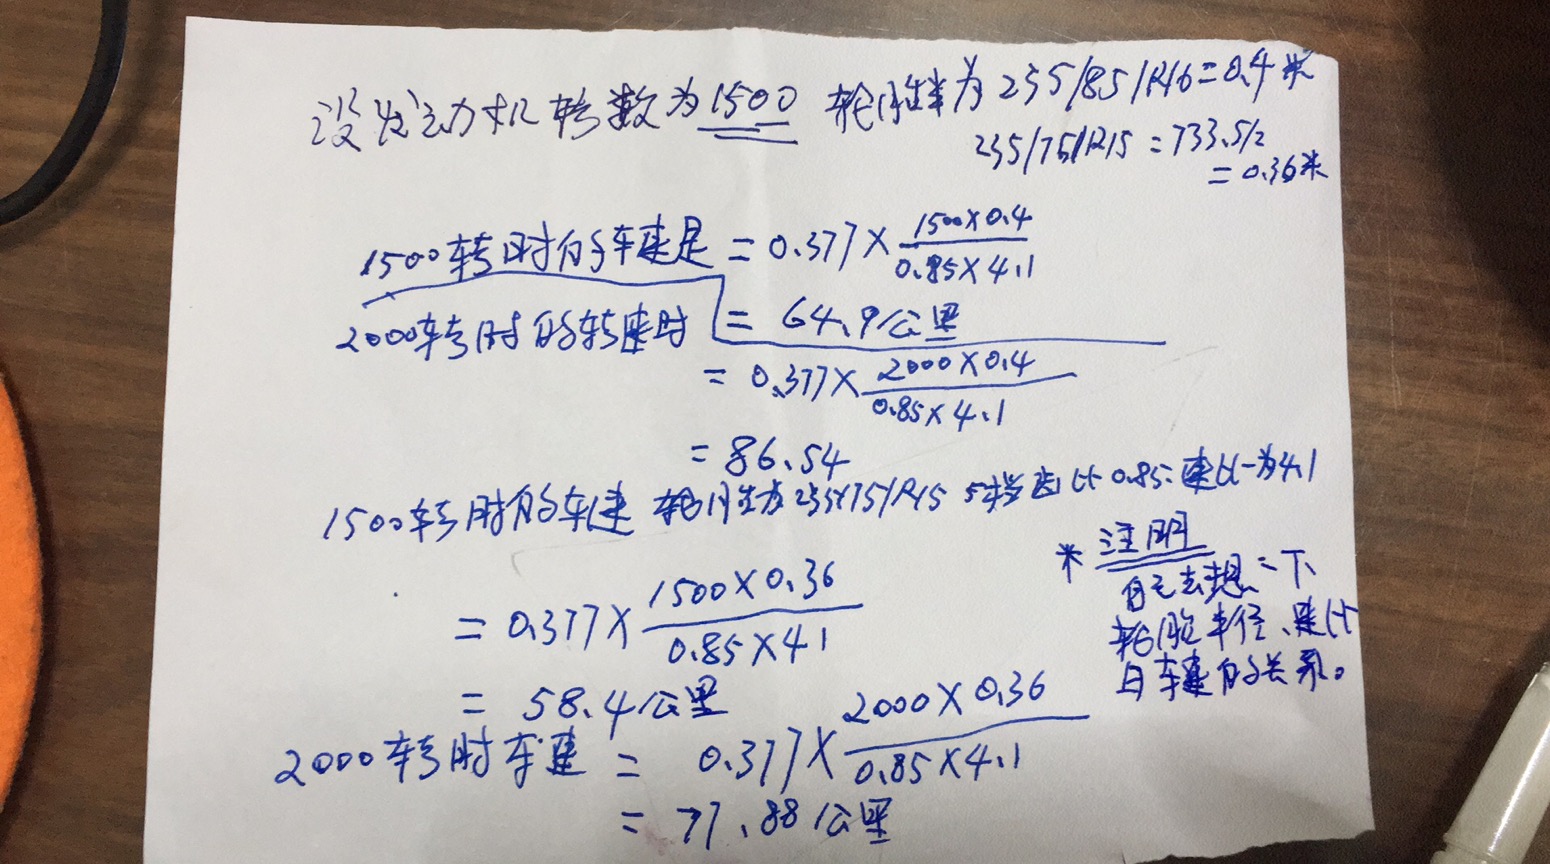 设发动机转数为1500 轮胎半为235/85/R16=0.4米
235/75/R15=733.5/2
=0.36米
1500转时的车速是=0.377×1500×0.4/0.85×4.1
=64.9公里
2000转时的转速时
=0.377×2000×0.4/0.85×4.1
=86.54
1500转时的车速 轮胎为235/75/R15 5档齿比0.85.速比为4.1
=0.377×1500×0.36/0.85×4.1
=58.4公里
2000转时车速=0.377×2000×0.36/0.85×4.1
=77.88公里
*注明
自己去想一下
轮胎半径、速比
与车速的关系。